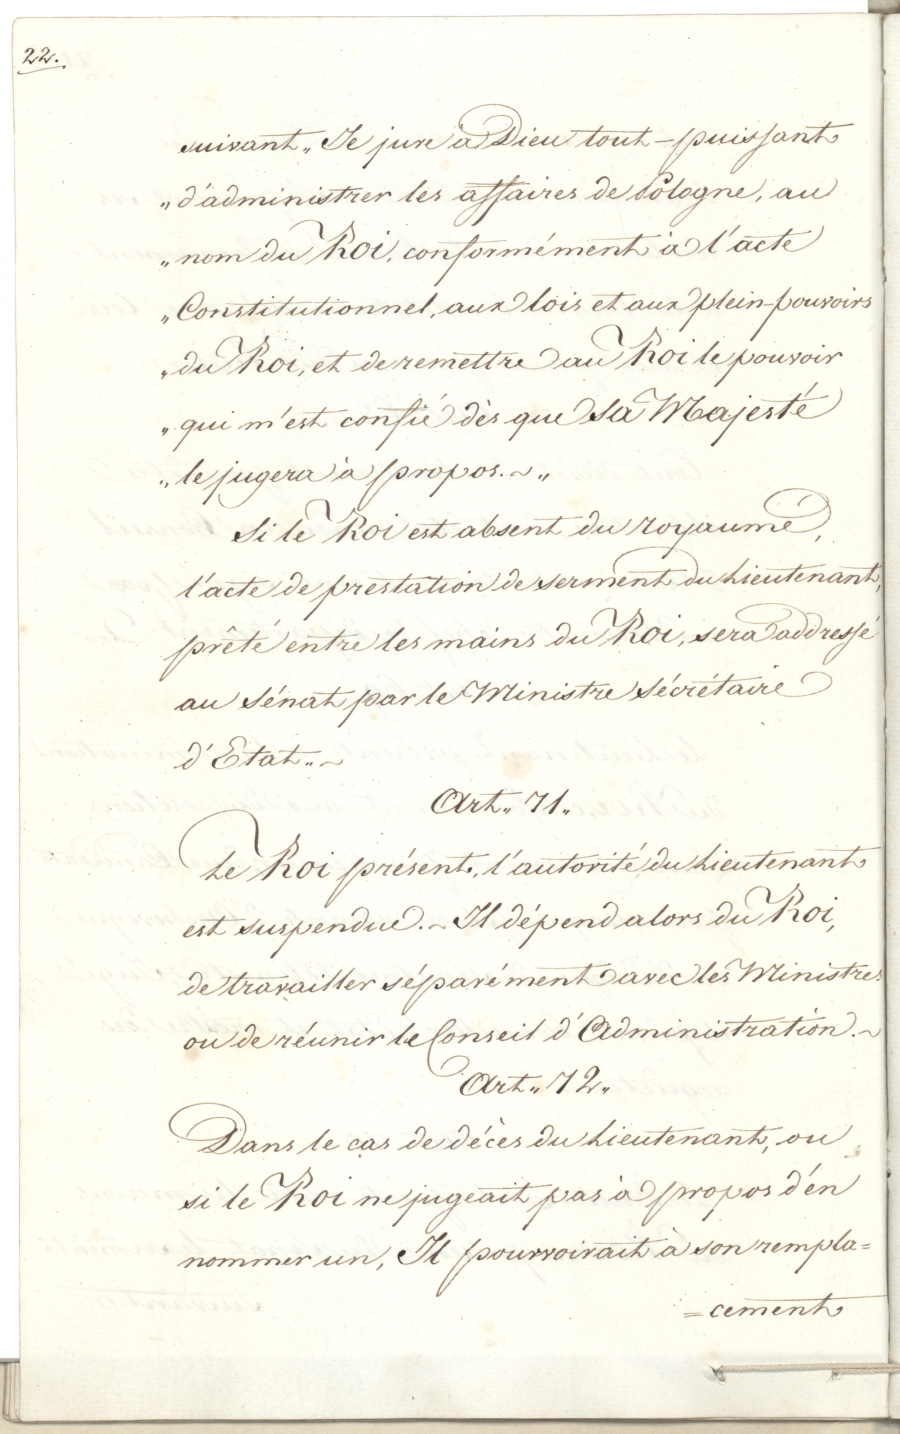 22.
suivant „ Je jure à Dieu tout-puissant
„ d'administrer les affaires de Pologne, au
„ nom du Roi, conformément à l'acte
„ Constitutionnel, aux lois et aux plein-pouvoirs
„ du Roi, et de remettre au Roi le pouvoir
„ qui m'est confié dès que Sa Majesté
„ le jugera à propos. ~ „
Si le Roi est absent du royaume,
l'acte de prestation de serment du Lieutenant,
prêté entre les mains du Roi, sera addressé
au Sénat par le Ministre Sécrétaire
d'Etat. ~
Art. 71.
Le Roi présent, l'autorité du Lieutenant
est suspendue. ~ Il dépend alors du Roi,
de travailler séparément avec les Ministres
ou de réunir le Conseil d'Administration. ~
Art. 72.
Dans le cas de décès du Lieutenant, ou
si le Roi ne jugeait pas à propos d'en
nommer un, Il pourvoirait à son rempla=
=cement